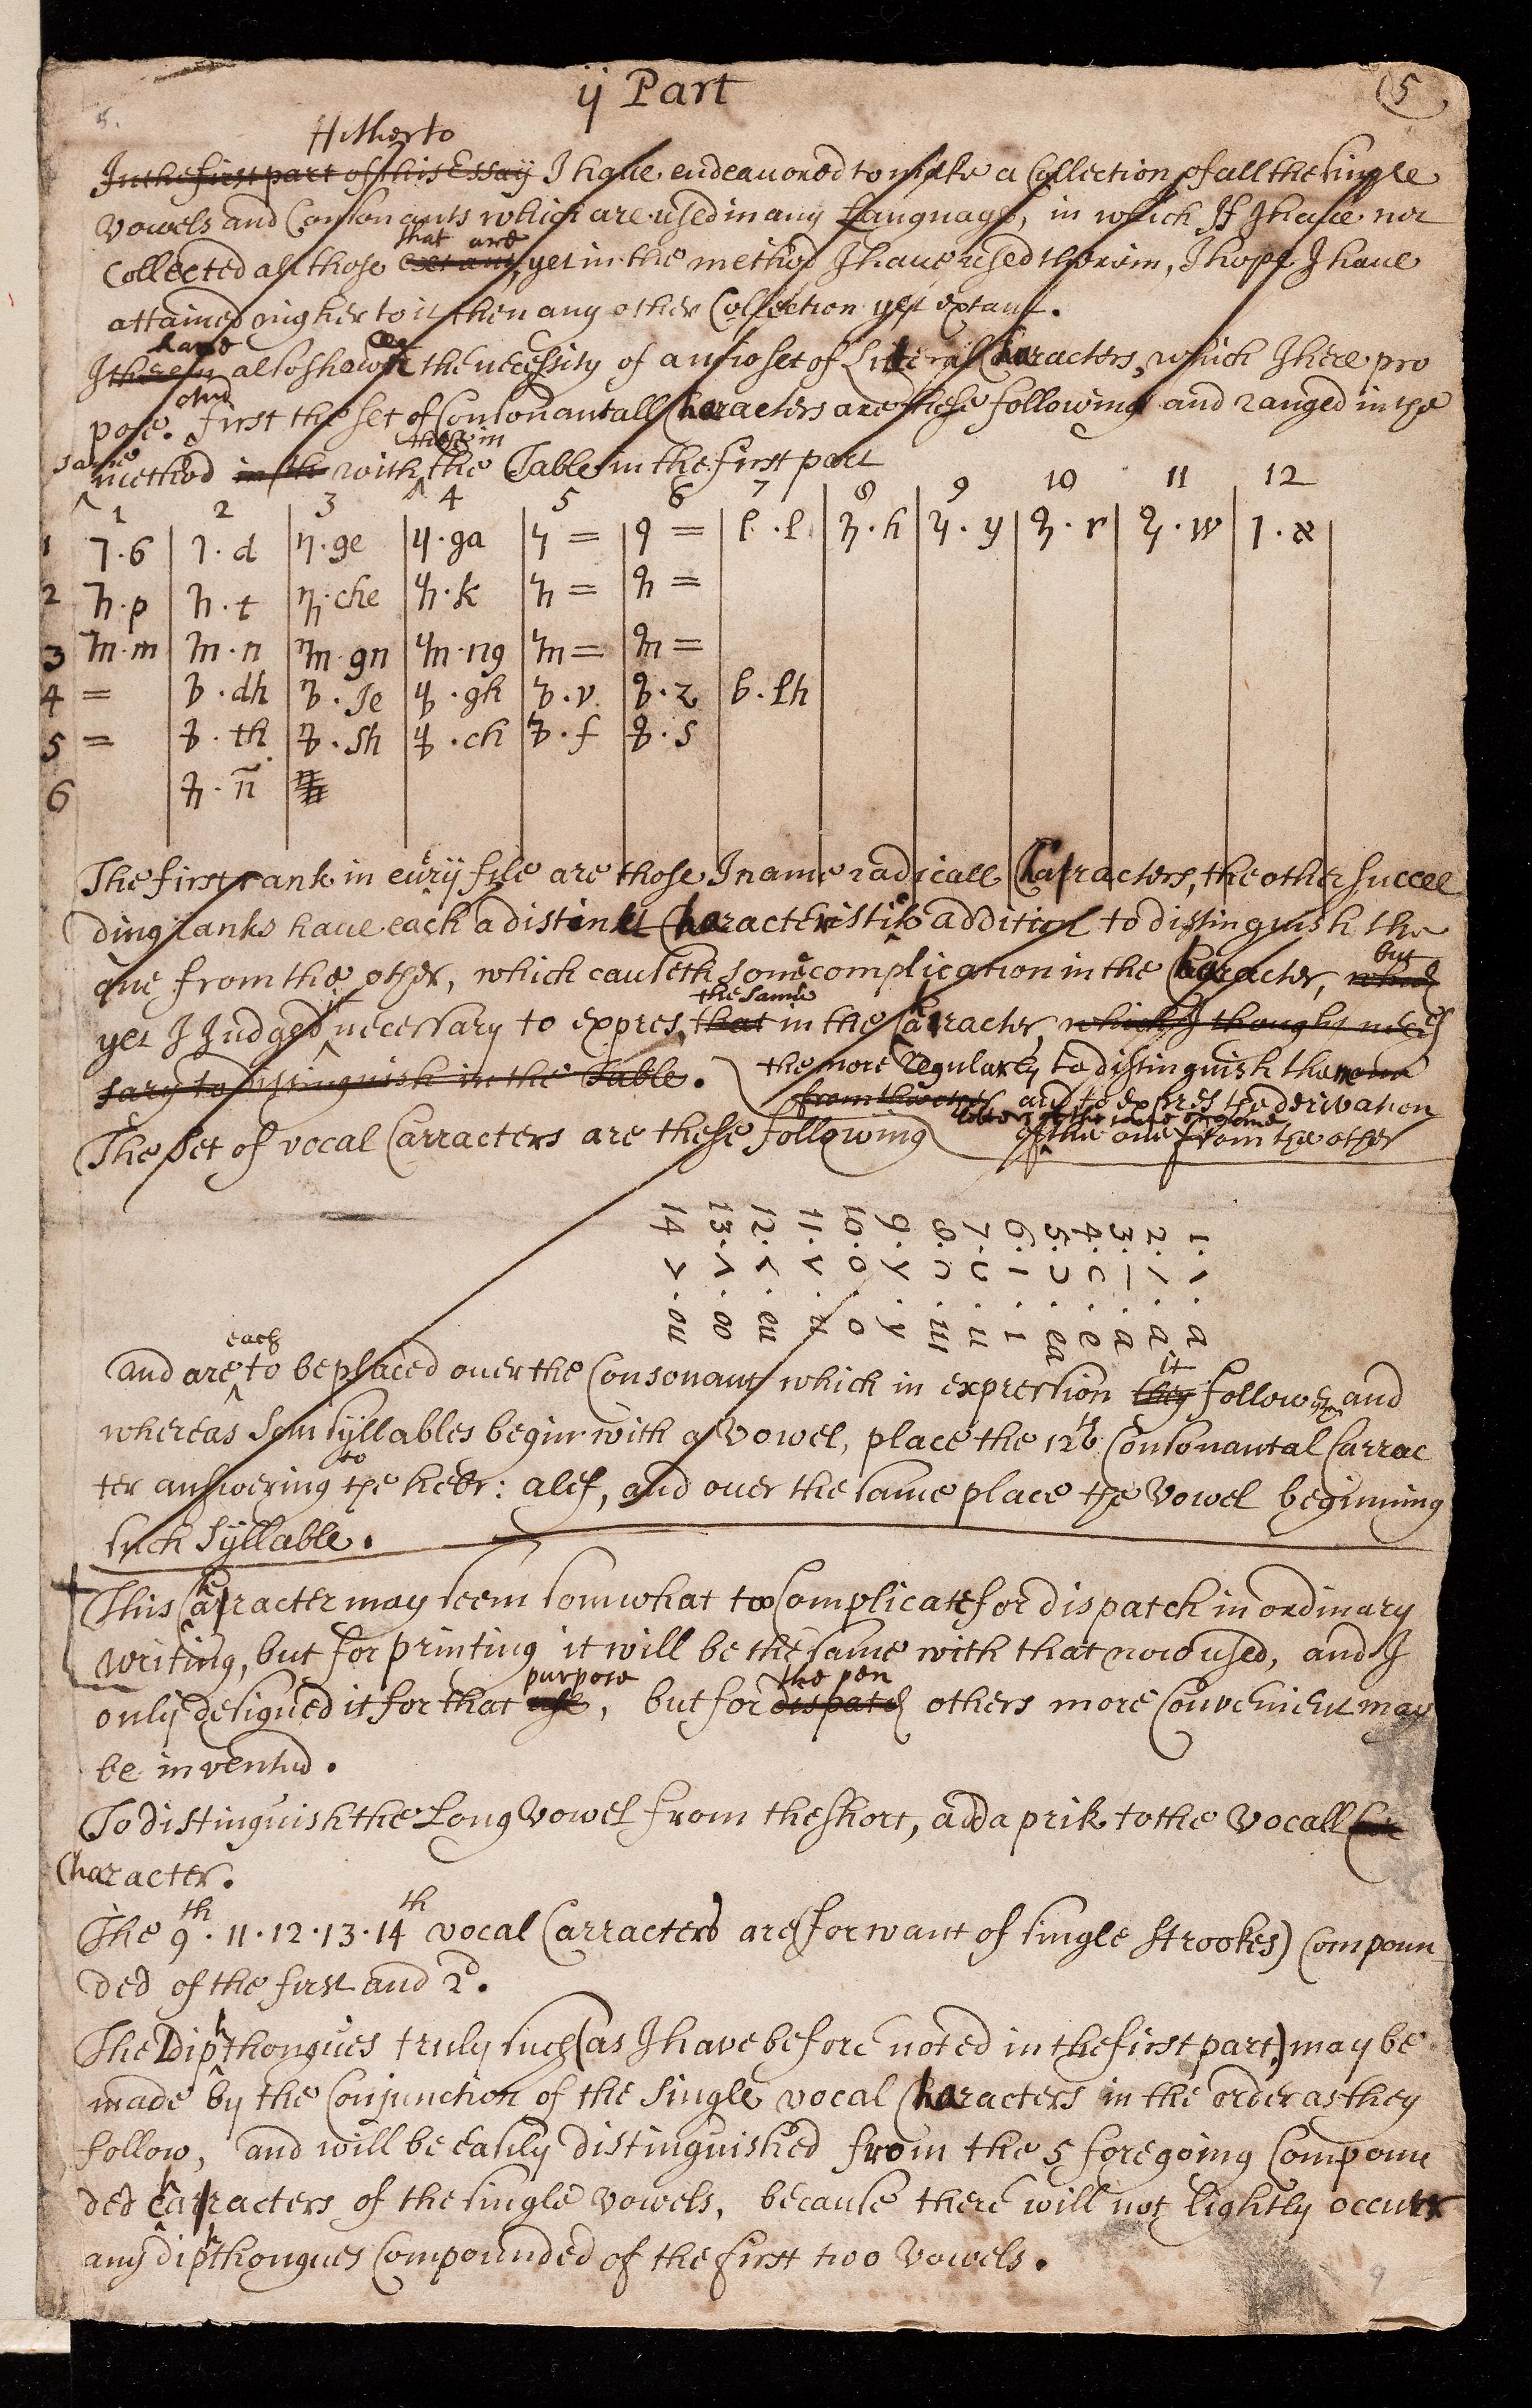 ij Part
5
5.
Hitherto
In the first part of this Essay I haue endeauored to make a Collection of all the single
vowels and Consonants which are used in any Language, in which If I haue not
that are
Collected all those extant, yet in the method I haue used therein, I hope I haue
attained nigher to it then any other Collection yet extant.
haue
I therein also showen the necessity of a new set of Literal Characters, which I here pro
and
pose. first the set of Consonantall Characters are these following and ranged in the
same
those in
method in the with the Table in the first part
1 2 3 4 5 6 7 8 9 10 11 12
1 · b · d · ge · ga = = · l · h · y · r · w · א
2 · p · t · che · k = =
3 · m · n · gn · ng = =
4 = · dh · Je · gh · v · z · lh
5 = · th · sh · ch · f · s
6 · ñ
The first rank in euery file are those I name radicall Characters, the other succee
ding ranks haue each a distinkt Characteristik addition to distinguish the
one from the other, which causeth some complication in the Character, which
but
the same
yet I Judged it necessary to expres that in the Carracter which I thought neces
sary to distinguish in the Table.
the more regularly to distinguish them
from the other and to expres the derivation
of the one from the other
The Set of vocal Carracters are these following
1. \ . a
2. / . a
3. — . a
4. c . e
5. . ea
6. ı . i
7. . u
8. . ııı
9. . y
10. o . o
11. v . u
12. . eu
13. . oo
14 . ou
each
and are to be placed ouer the Consonant which in expression they followeth and
it
whereas som syllables begin with a Vowel, place the 12th Consonantal Carrac
to
ter answering the hebr: alef, and ouer the same place the Vowel beginning
such syllable.
This Character may seem somwhat too Complicate for dispatch in ordinary
writing, but for printing it will be the same with that now used, and I
purpose the pen
only designed it for that use, but for dispatch others more Convenient may
be invented.
To distinguish the Long Vowel from the short, add a prik to the Vocall Car
Character.
The 9th. 11. 12. 13. 14th vocal Carracters are (for want of single strookes) Compoun
ded of the first and 2d.
The Diphthongues truly such (as I have before noted in the first part) may be
made by the Conjunction of the single vocal Characters in the order as they
follow, and will be easily distinguished from the 5 foregoing Compoun
ded Characters of the single Vowels, because there will not lightly occurr
any diphthongues Compounded of the first two Vowels.
9